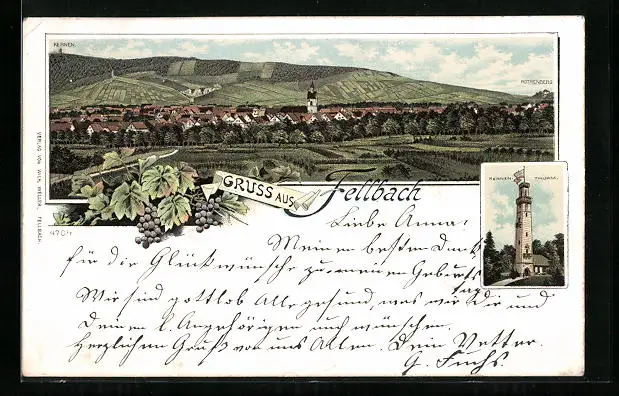 KERNEN.
ROTHENBERG
GRUSS AUS Fellbach
KERNEN THURM.
VERLAG VON WILH. FELLBACH.
4704
Liebe Anna!
Meinen besten Dank
für die Glückwünsche zu meinem Geburts
tag
Wir sind gottlob Alle gesund, was wir Dir und
Deinen l. Angehörigen auch wünschen.
Herzlichen Gruß von uns Allen. Dein Vetter
G. Fuchs.